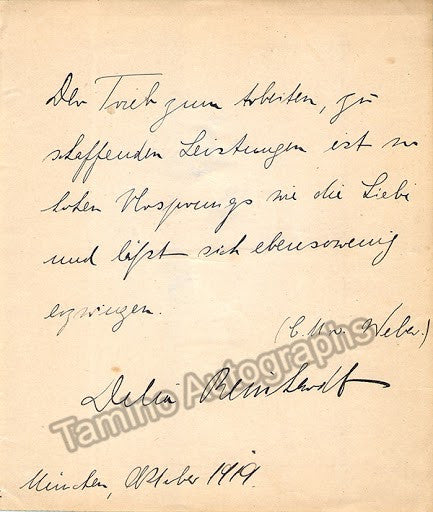 Der Trieb zum Arbeiten, zu
schaffenden Leistungen ist so
hohen Ursprungs wie die Liebe
und läßt sich ebensowenig
erzwingen.
(C. M. v. Weber.)
Delia Reinhardt
München, Oktober 1919.
Tamino Autographs